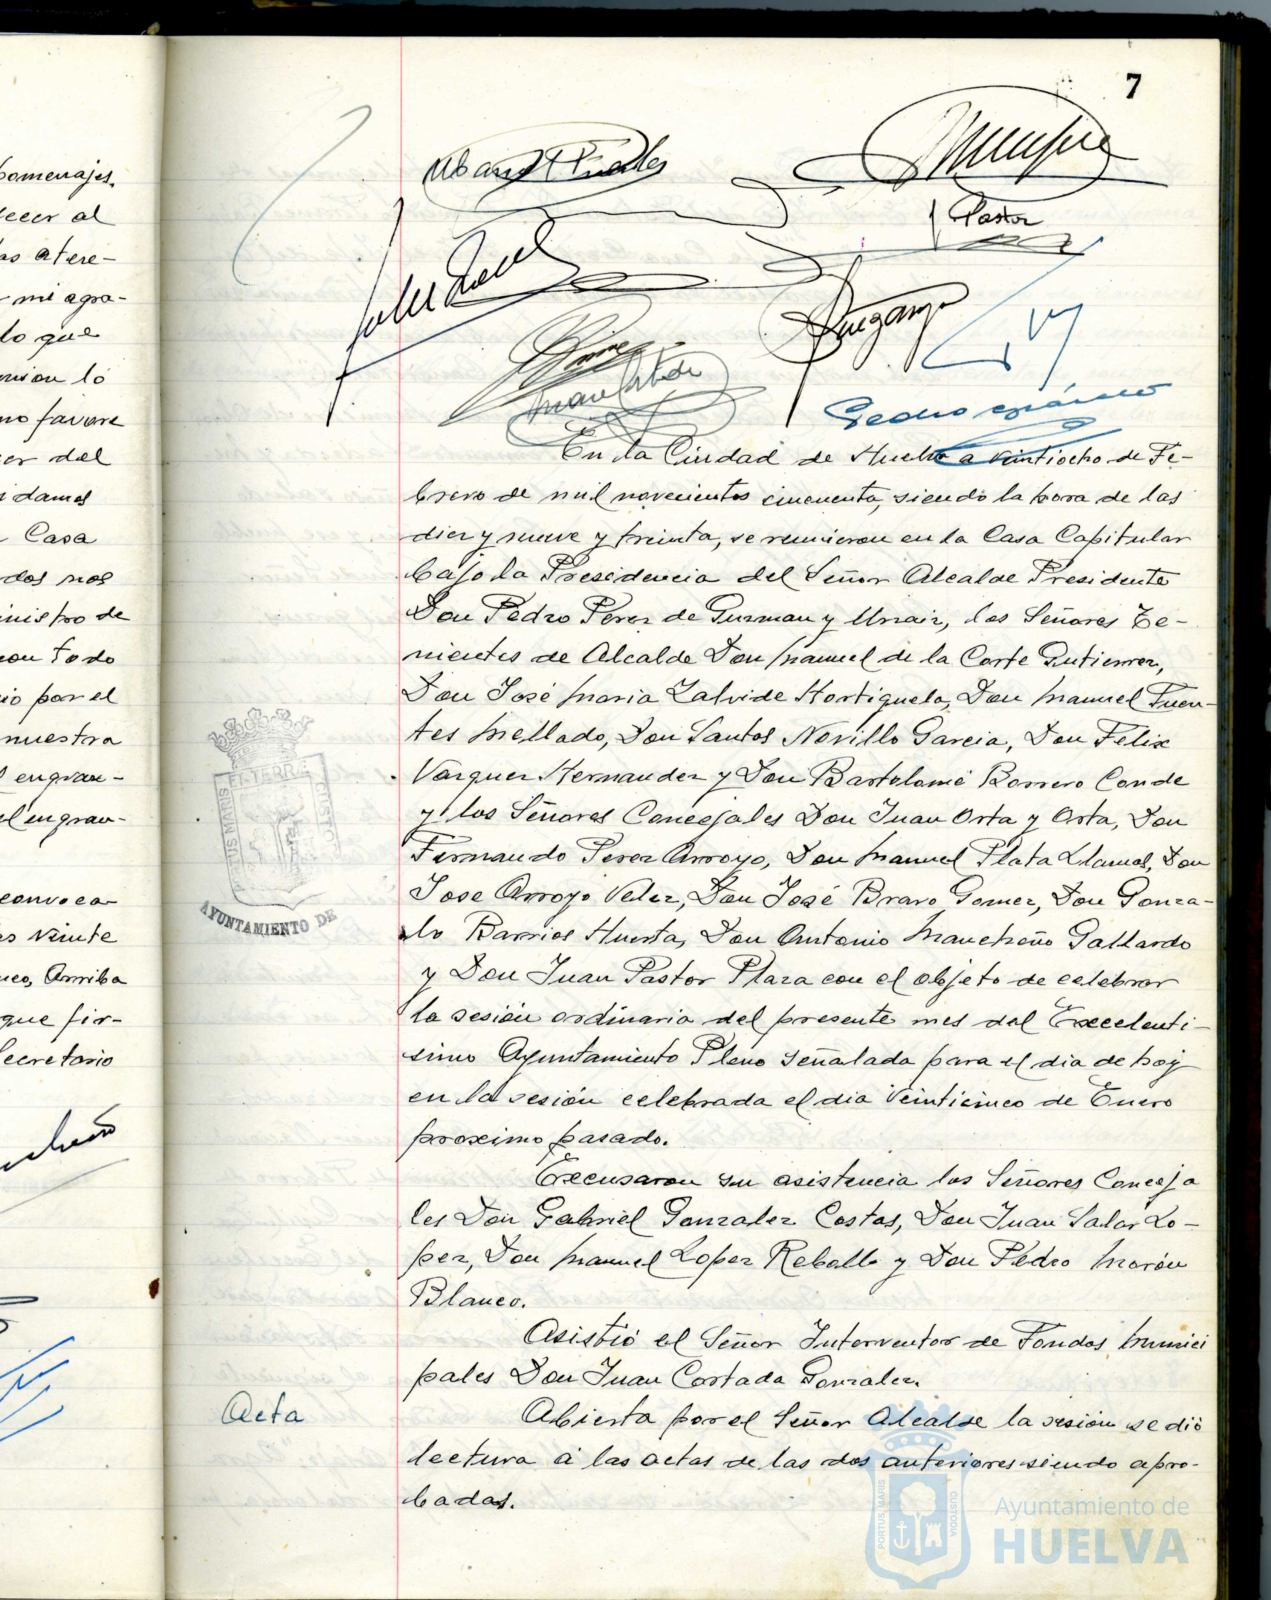 homenajes.
ecer al
as atere-
mi agra-
lo que
nion lo
no favore
er del
idamos
Casa
dos nos
inistro de
con todo
io por el
nuestra
engran-
el engran-
convoca-
es veinte
nco, Arriba
que fir-
Secretario
7
Pastor
En la Ciudad de Huelva a veintiocho de Fe-
brero de mil novecientos cincuenta, siendo la hora de las
diez y nueve y treinta, se reunieron en la Casa Capitular
bajo la Presidencia del Señor Alcalde Presidente
Don Pedro Perez de Guzman y Urzaiz, los Señores Te-
nientes de Alcalde Don Manuel de la Corte Gutierrez,
Don José Maria Zalvide Hortiguela, Don Manuel Fuen-
tes Mellado, Don Santos Novillo Garcia, Don Félix
Vazquez Hernandez y Don Bartolomé Borrero Conde
y los Señores Concejales Don Juan Orta y Orta, Don
Fernando Perez Arroyo, Don Manuel Plata Llamas, Don
Jose Arroyo Velez, Don José Bravo Gomez, Don Gonza-
lo Barrios Huerta, Don Antonio Mancheño Gallardo
y Don Juan Pastor Plaza con el objeto de celebrar
la sesión ordinaria del presente mes del Excelenti-
simo Ayuntamiento Pleno señalada para el dia de hoy
en la sesión celebrada el dia veinticinco de Enero
proximo pasado.
Excusaron su asistencia los Señores Conceja
les Don Gabriel Gonzalez Costas, Don Juan Salas Lo-
pez, Don Manuel Lopez Rebollo y Don Pedro Morón
Blanco.
Asistió el Señor Interventor de Fondos Munici
pales Don Juan Cortada Gonzalez.
Acta
Abierta por el Señor Alcalde la sesión se dió
lectura á las actas de las dos anteriores siendo apro-
badas.
US MARIS ET TERR CUSTO
AYUNTAMIENTO DE
PORTUS MARIS
CUSTODIA
Ayuntamiento de
HUELVA